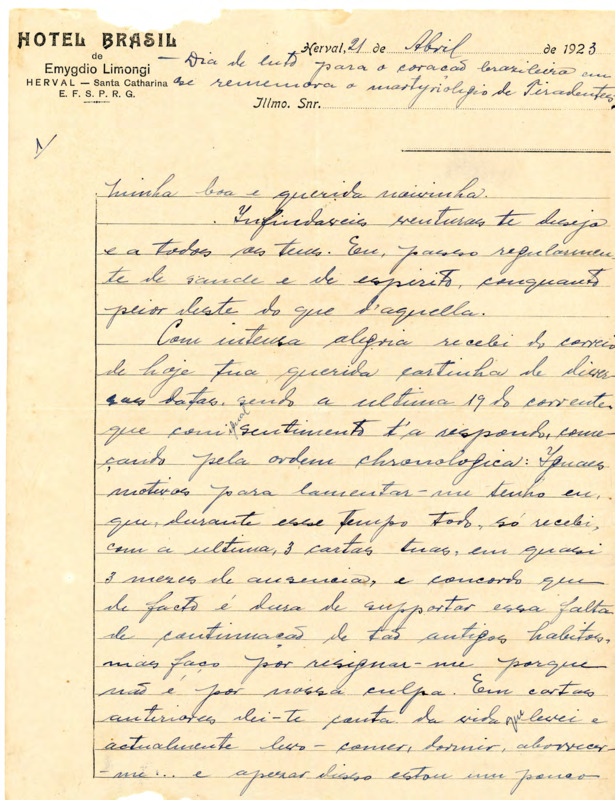 HOTEL BRASIL
de
Emygdio Limongi
HERVAL — Santa Catharina
E. F. S. P. R. G.
Herval, 21 de Abril de 1923
— Dia de luto para o coração brazileiro em
se rememora o martyriologio de Tiradentes,
Illmo. Snr.
1/
Minha boa e querida noivinha.
Infindaveis venturas te desejo
e a todos os teus. Eu, passo regularmen-
te de saude e de espirito, conquanto
peior deste do que d'aquella.
Com intensa alegria recebi do correio
de hoje tua querida cartinha de diver-
sas datas, sendo a ultima 19 do corrente
que com igual sentimento t'a respondo, come-
çando pela ordem chronologica: Iguaes
motivos para lamentar-me tenho eu,
que, durante esse tempo todo, só recebi,
com a ultima, 3 cartas tuas, em quasi
3 mezes de ausencia, e concordo que
de facto é dura de supportar essa falta
de continuação de tão antigos habitos,
mas faço por resignar-me porque
não é por nossa culpa. Em cartas
anteriores dei-te conta da vida que levei e
actualmente levo - comer, dormir, aborrecer-
me... e apezar disso estou um pouco